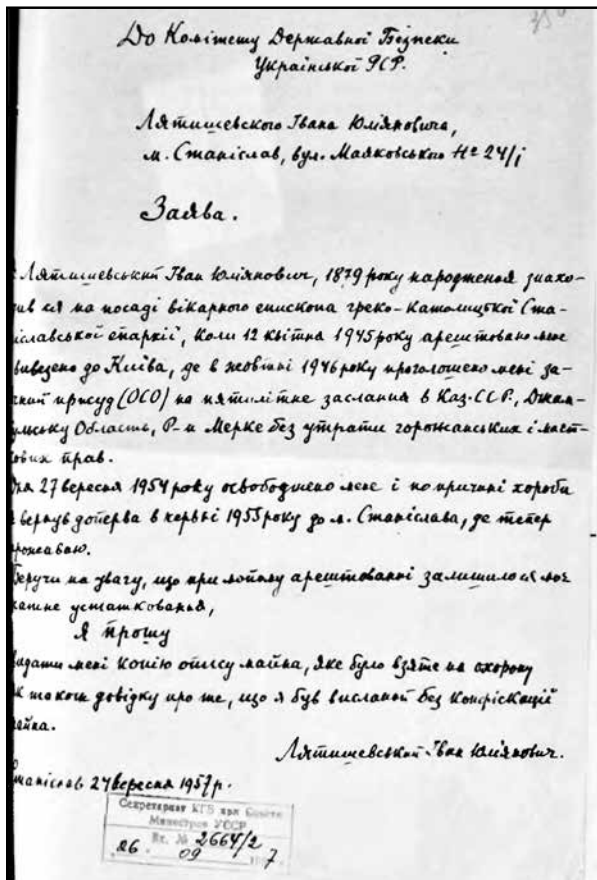 До Комітету Державної Безпеки
Української РСР.
Лятишевского Івана Юліяновича,
м. Станіслав, вул. Маяковського № 24/
Заява.
Лятишевський Іван Юліянович, 1879 року народження знахо-
ив ся на посаді вікарного епископа греко-Католицкої Ста-
іславської епархії, коли 12 квітня 1945 року арештовано мене
вивезено до Київа, де в жовтні 1946 року проголошено мені за-
чний присуд (ОСО) на пятолітне заслання в Каз. ССР., Джам-
ульську Область, Р-н Мерке без утрати горожанських і маєт-
кових прав.
ня 27 вересня 1954 року освободжено мене і по причині хороби
вернув доперва в червні 1955 року до м. Станіслава, де тепер
рожаваю.
Беручи на увагу, що при моїому арештованні залишилося моє
устатковання,
Я прошу
идати мені копію опису майна, яке було взяте на охорону
к також довідку про те, що я був висланий без конфіскації
айна.
Лятишевський Іван Юліянович.
таніслав 24 вересня 1957 р.
Секретариат КГБ при Совете
Министров УССР
Вх. № 2664/2
26. 09 7.